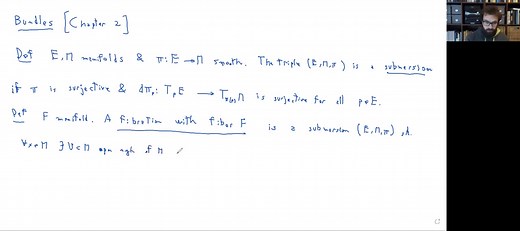 Bundles [Chapter 2]
Def E, M manifolds & π: E → M smooth. The triple (E, M, π) is a submersion
if π is surjective & dπₚ: TₚE → T_π(p)M is surjective for all p∈E.
Def F manifold. A fibration with fiber F is a submersion (E, M, π), s.t.
∀x∈M ∃U⊂M open ngh of